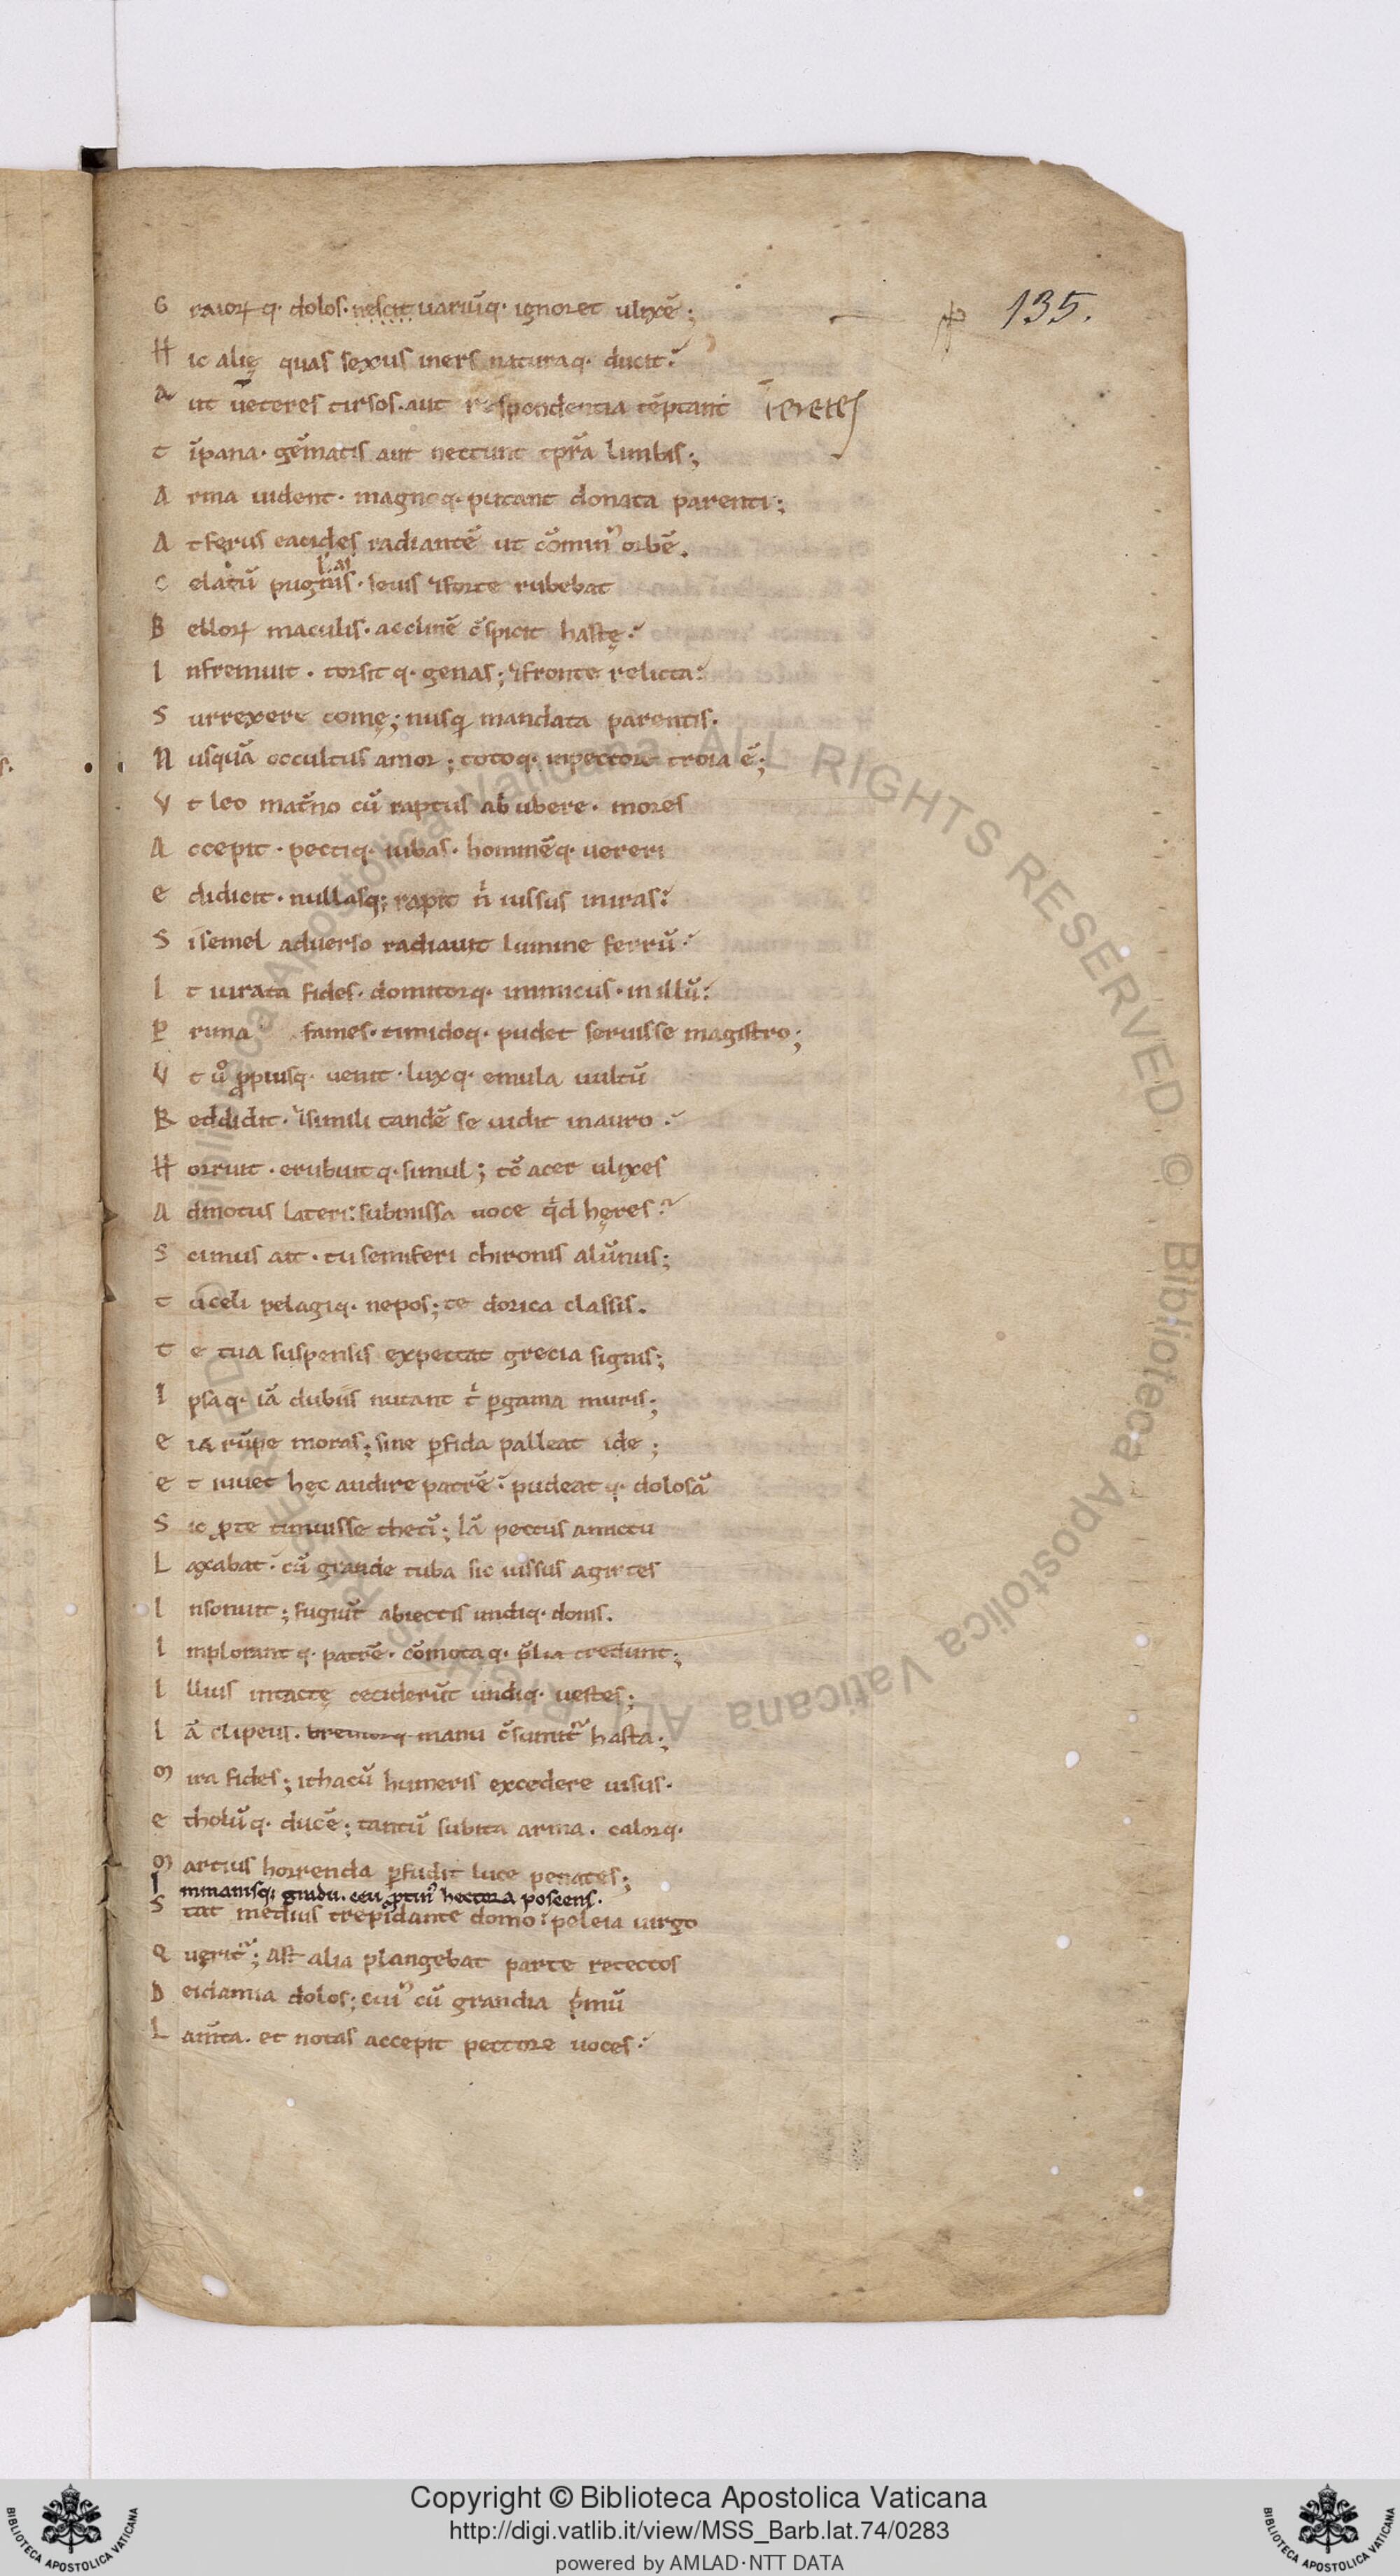 G raioꝝ q· dolos· nescit uariūq· ignoret ulixē;
135.
H ic alię quas sexus iners naturaq· ducit·
A ut ueteres tirsos· aut respondentia tēptant Teretes
t īpana· gēmatis aut nectunt tp̄ra limbis;
A rma uident· magnoq· putant donata parenti;
A t ferus eacides radiantē ut cōmin᾽ orbē.
C elatū pugnis· seuis ⁊forte rubebat
ł· as
B elloꝝ maculis· acclinē c̄spicit hastę·
I nfremuit· torsit q· genas; ⁊fronte relicta:
S urrexere comę; nusq̄ mandata parentis·
N usquā occultus amor; totoq· inpectore troia ē;
V t leo mat̄no cū raptus ab ubere· mores
A ccepit· pectiq· iubas· hominēq· uereri
e didicit· nullasq; rapit n̄ iussus iniras:
S i semel aduerso radiauit lumine ferrū·
I t iurata fides· domitorq· inimicus· in illū:
P rima fames· timidoq· pudet seruisse magistro;
V t ů ꝓpiusq· uenit· luxq· emula uultū
R eddidit· ⁊simili tandē se uidit inauro·
H orruit· erubuit q· simul; tc̄ acer ulixes
A dmotus lateri: submissa uoce qd hęres·
S cimus ait· tu semiferi chironis alūnus;
t u celi pelagiq· nepos; te dorica classis.
t e tua suspensis expectat grecia signis;
I psaq· iā dubiis nutant t· ꝑgama muris;
e ia rūpe moras; sine ꝑfida palleat ide;
e t iuuet hęc audire patrē· pudeat q· dolosā
S ic ꝓte timuisse thetī; Iā pectus amictu
L axabat· cū grande tuba sic iussus agirtes
I nsonuit; fugiūt abiectis undiq· donis.
I mplorant q· patrē· cōmota q· p̄lia credunt;
I llius intactę ceciderūt undiq· uestes;
I ā clipeus· breuiorq manu c̄sumit᾽ hasta;
M ira fides; ithacū humeris excedere uisus·
e tholūq· ducē; tantū subita arma· calorq·
M artius horrenda ꝑfudit luce penates;
I mmanisq; gradu· ceu ꝓtin᾽ hectora poscens·
S tat medius trepidante domo: peleia uirgo
Q uęrit᾽; Ast alia plangebat parte retectos
D eidamia dolos; cui᾽ cū grandia p̄mū
L am̄ta· et notas accepit pectore uoces·
Copyright © Biblioteca Apostolica Vaticana
http://digi.vatlib.it/view/MSS_Barb.lat.74/0283
powered by AMLAD·NTT DATA